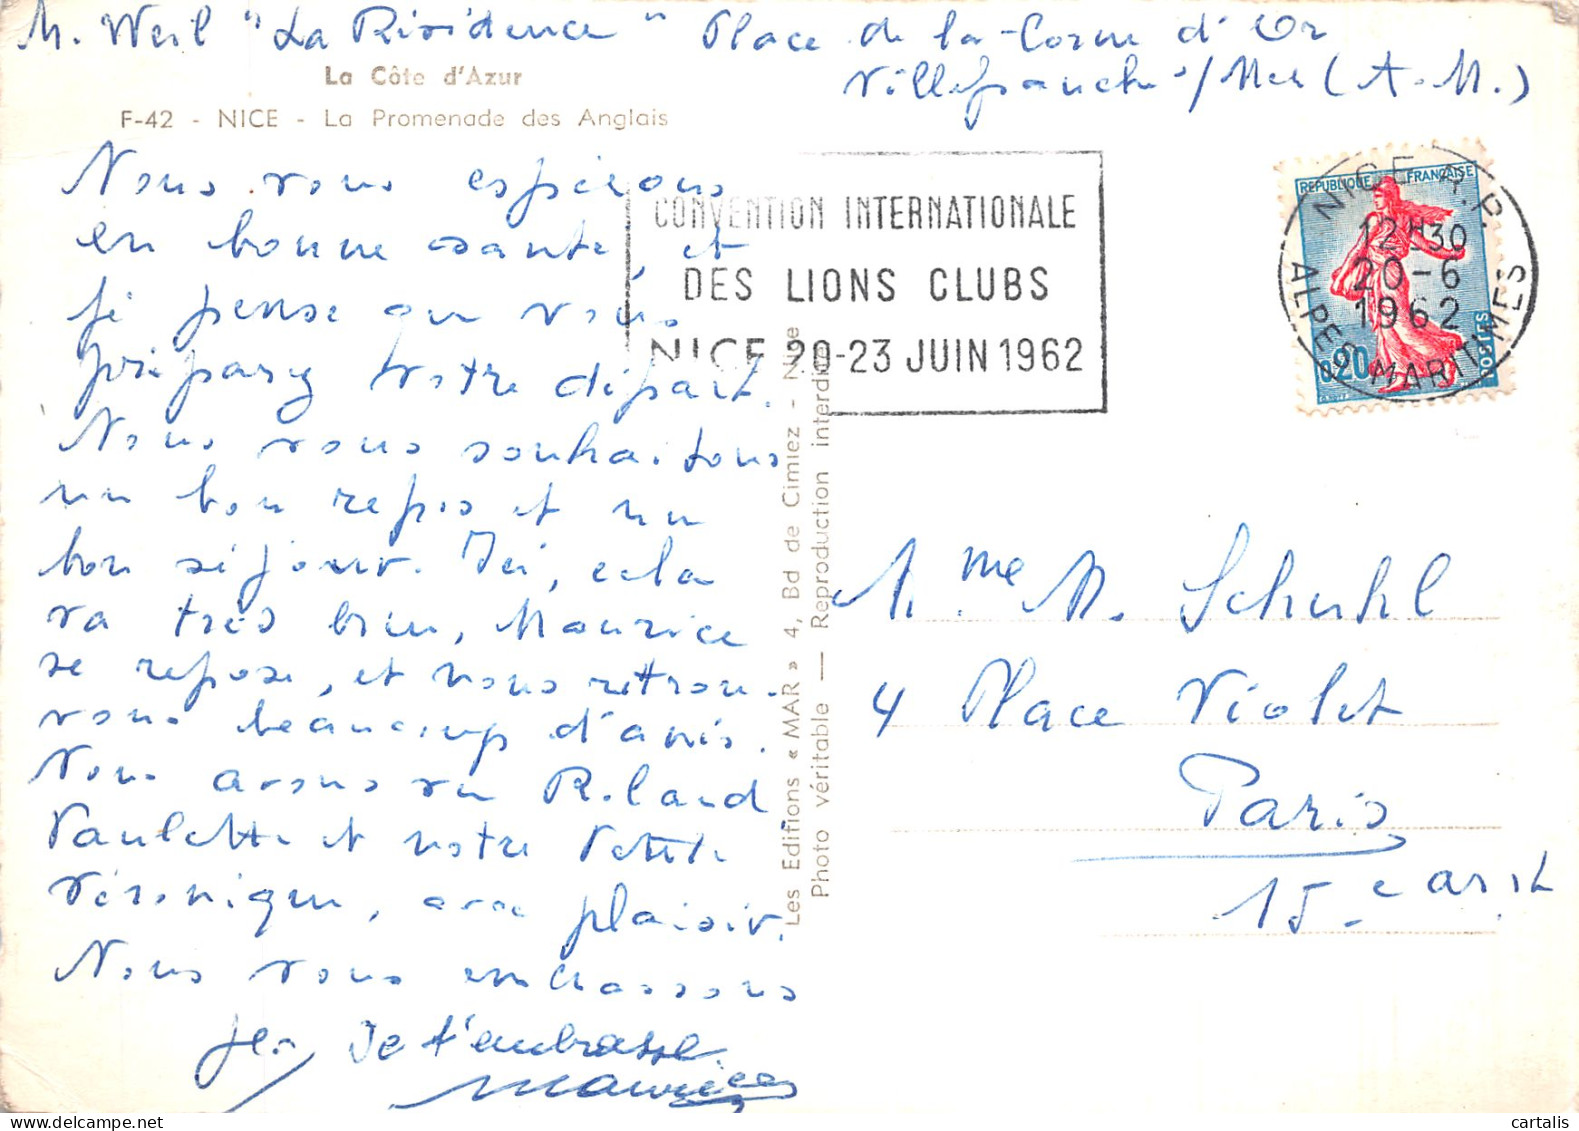 M. Weil "La Résidence" Place de la Corne d'Or
Villefranche s/Mer (A.-M.)
La Côte d'Azur
F-42 - NICE - La Promenade des Anglais
Nous vous espérons
en bonne santé, et
je pense que vous
préparez votre départ.
Nous vous souhaitons
un bon repos et un
bon séjour. Ici, cela
va très bien, Maurice
se repose, et nous retrou-
vons beaucoup d'amis.
Nous avons vu Roland
Paulette et notre Petite
Véronique, avec plaisir.
Nous vous embrassons
Je t'embrasse
Maurice
Les Editions « MAR » 4, Bd de Cimiez - Nice
Photo véritable — Reproduction interdite
CONVENTION INTERNATIONALE
DES LIONS CLUBS
NICE 20-23 JUIN 1962
REPUBLIQUE FRANÇAISE
0,20
POSTES
NICE R.P.
12H30
20-6
1962
ALPES MARITIMES
Mme M. Schuhl
4 Place Violet
Paris
15e arrt